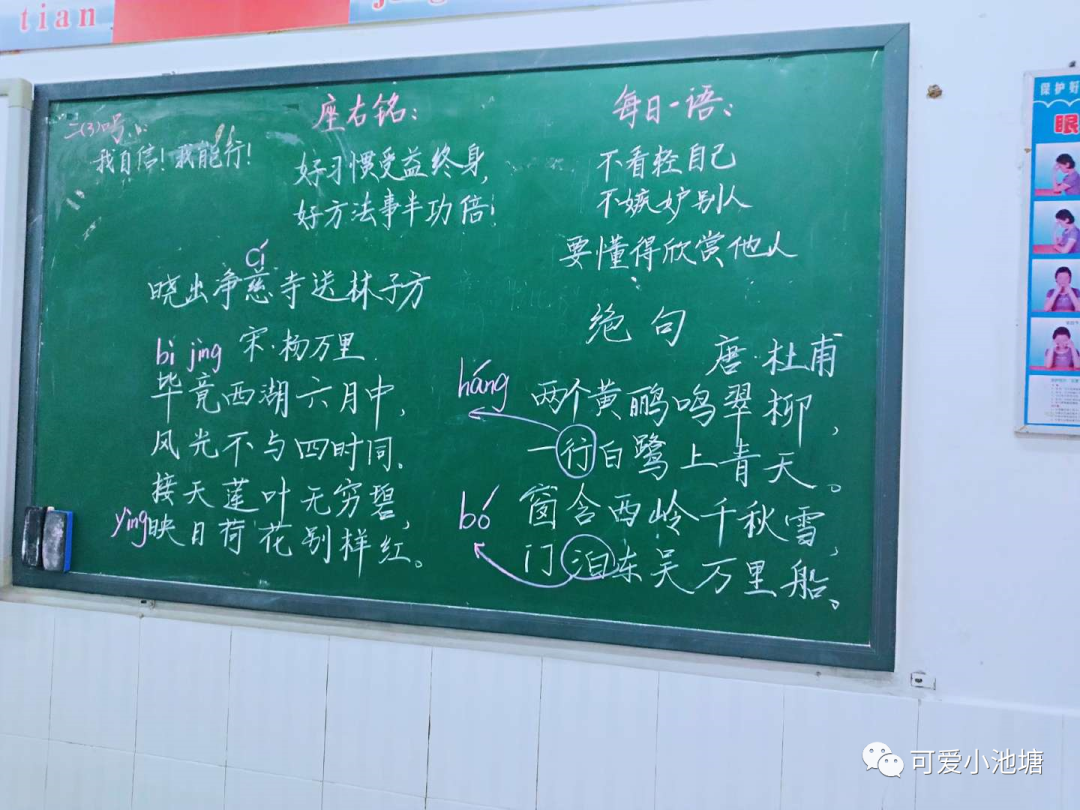 tian
二(3)口号:
我自信!我能行!
座右铭:
好习惯受益终身,
好方法事半功倍!
每日一语:
不看轻自己
不嫉妒别人
要懂得欣赏他人
cí
晓出净慈寺送林子方
bì jìng
宋·杨万里
毕竟西湖六月中,
风光不与四时同。
接天莲叶无穷碧,
yìng
映日荷花别样红。
绝句
唐·杜甫
háng
两个黄鹂鸣翠柳,
一行白鹭上青天。
bó
窗含西岭千秋雪,
门泊东吴万里船。
保护好
眼
可爱小池塘